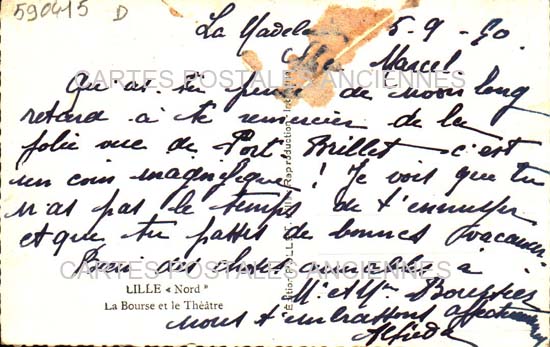 590415 D
La Madele 5-9-50
Cher Marcel
Qu'as-tu pensé de mon long
retard à te remercier de la
jolie vue de Port-Brillet - c'est
un coin magnifique ! Je vois que tu
n'as pas le temps de t'ennuyer
et que tu passes de bonnes vacances
CARTES POSTALES ANCIENNES
Bien des choses aimables à
CARTES POSTALES ANCIENNES
LILLE « Nord »
La Bourse et le Théâtre
Mr et Mme
nous t'embrassons affectueusement
Alfred
Edition Reproduction